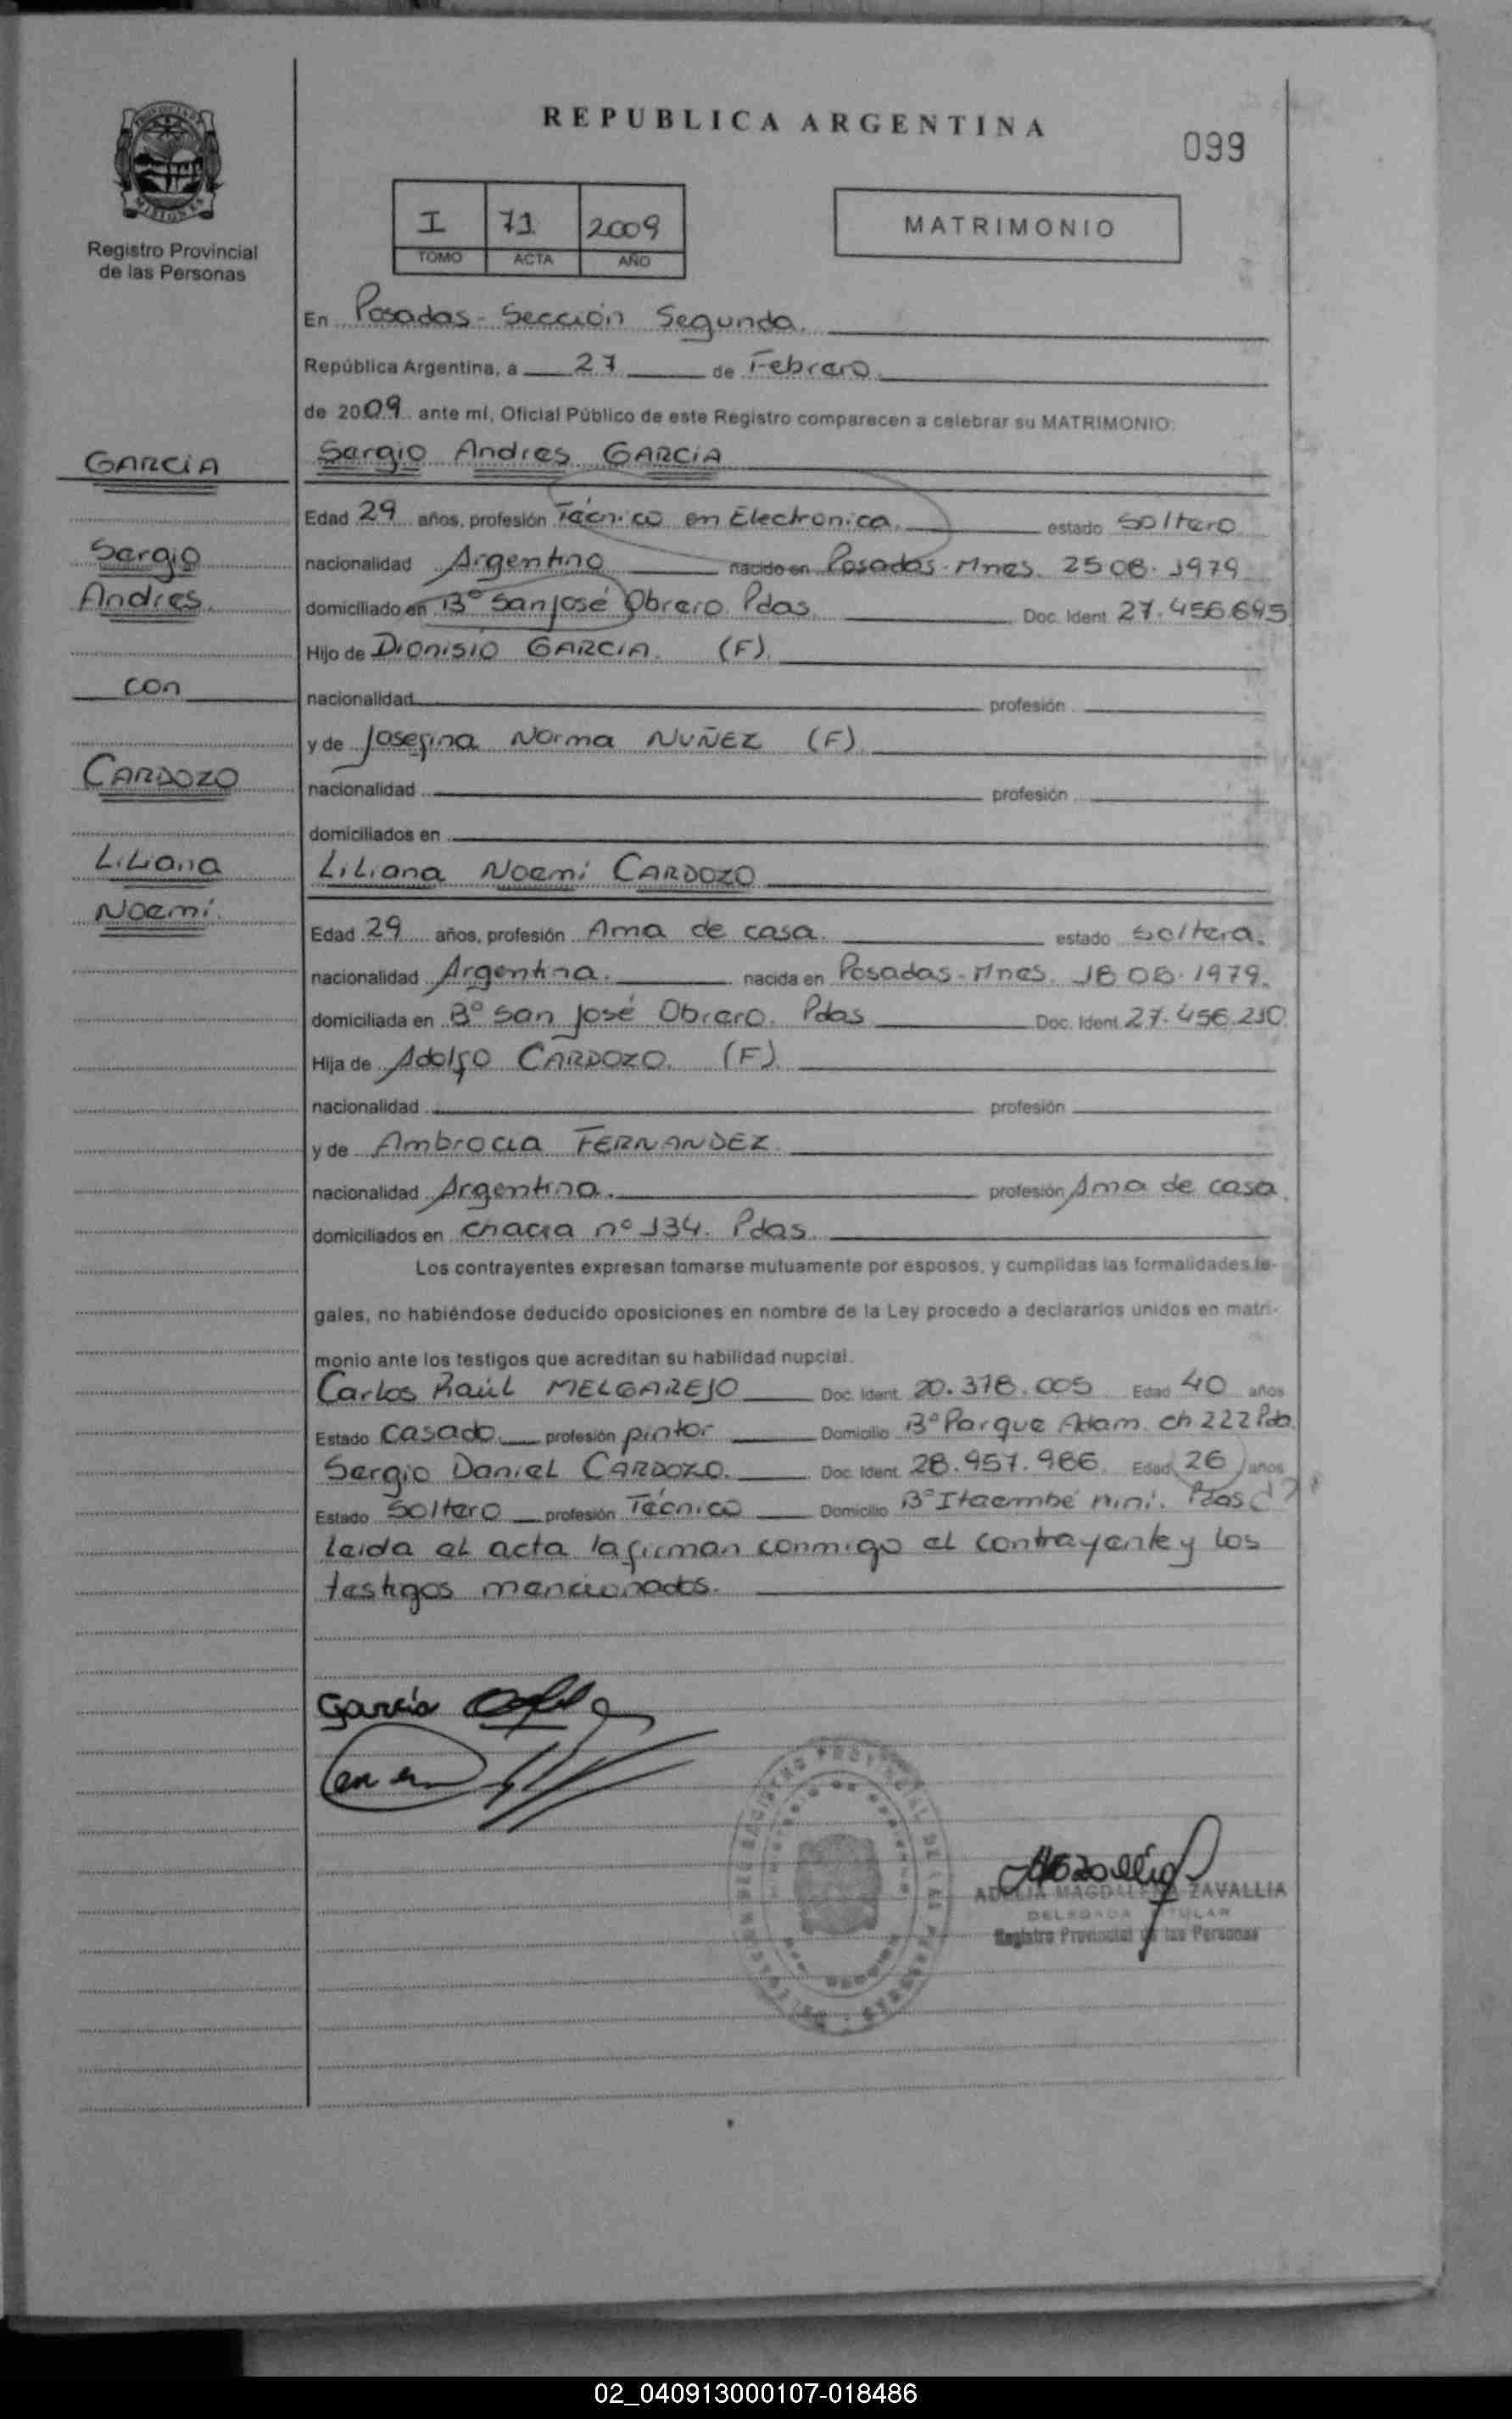 REPUBLICA ARGENTINA
099
Registro Provincial
de las Personas
I 71 2009
TOMO ACTA AÑO
MATRIMONIO
En Posadas - Sección Segunda.
República Argentina, a 27 de Febrero.
de 2009 ante mí, Oficial Público de este Registro comparecen a celebrar su MATRIMONIO:
GARCIA
Sergio
Andres
con
CARDOZO
Liliana
Noemi.
Sergio Andres GARCIA
Edad 29 años, profesión Técnico en Electronica. estado Soltero
nacionalidad Argentino nacido en Posadas - Mnes. 25 08. 1979
domiciliado en B° San José Obrero. Pdas. Doc. Ident. 27.456.695
Hijo de Dionisio GARCIA. (F).
nacionalidad profesión
y de Josefina Norma NUÑEZ (F)
nacionalidad profesión
domiciliados en
Liliana Noemi CARDOZO
Edad 29 años, profesión Ama de casa. estado Soltera.
nacionalidad Argentina. nacida en Posadas - Mnes. 18 08. 1979.
domiciliada en B° San José Obrero. Pdas Doc. Ident. 27.456.210
Hija de Adolfo CARDOZO. (F).
nacionalidad profesión
y de Ambrocia FERNANDEZ.
nacionalidad Argentina. profesión Ama de casa.
domiciliados en chacra n° 134. Pdas.
Los contrayentes expresan tomarse mutuamente por esposos, y cumplidas las formalidades le-
gales, no habiéndose deducido oposiciones en nombre de la Ley procedo a declararlos unidos en matri-
monio ante los testigos que acreditan su habilidad nupcial.
Carlos Raúl MELGAREJO Doc. Ident. 20.378.005 Edad 40 años
Estado Casado. profesión pintor Domicilio B° Parque Adam. ch 222 Pdas.
Sergio Daniel CARDOZO. Doc. Ident. 28.957.986. Edad 26 años
Estado Soltero profesión Técnico Domicilio B° Itaembé mini. Pdas
Leida el acta la firman conmigo el contrayente y los
testigos mencionados.
Garcia
ADELIA MAGDALENA ZAVALLIA
DELEGADA TITULAR
Registro Provincial de las Personas
02_040913000107-018486